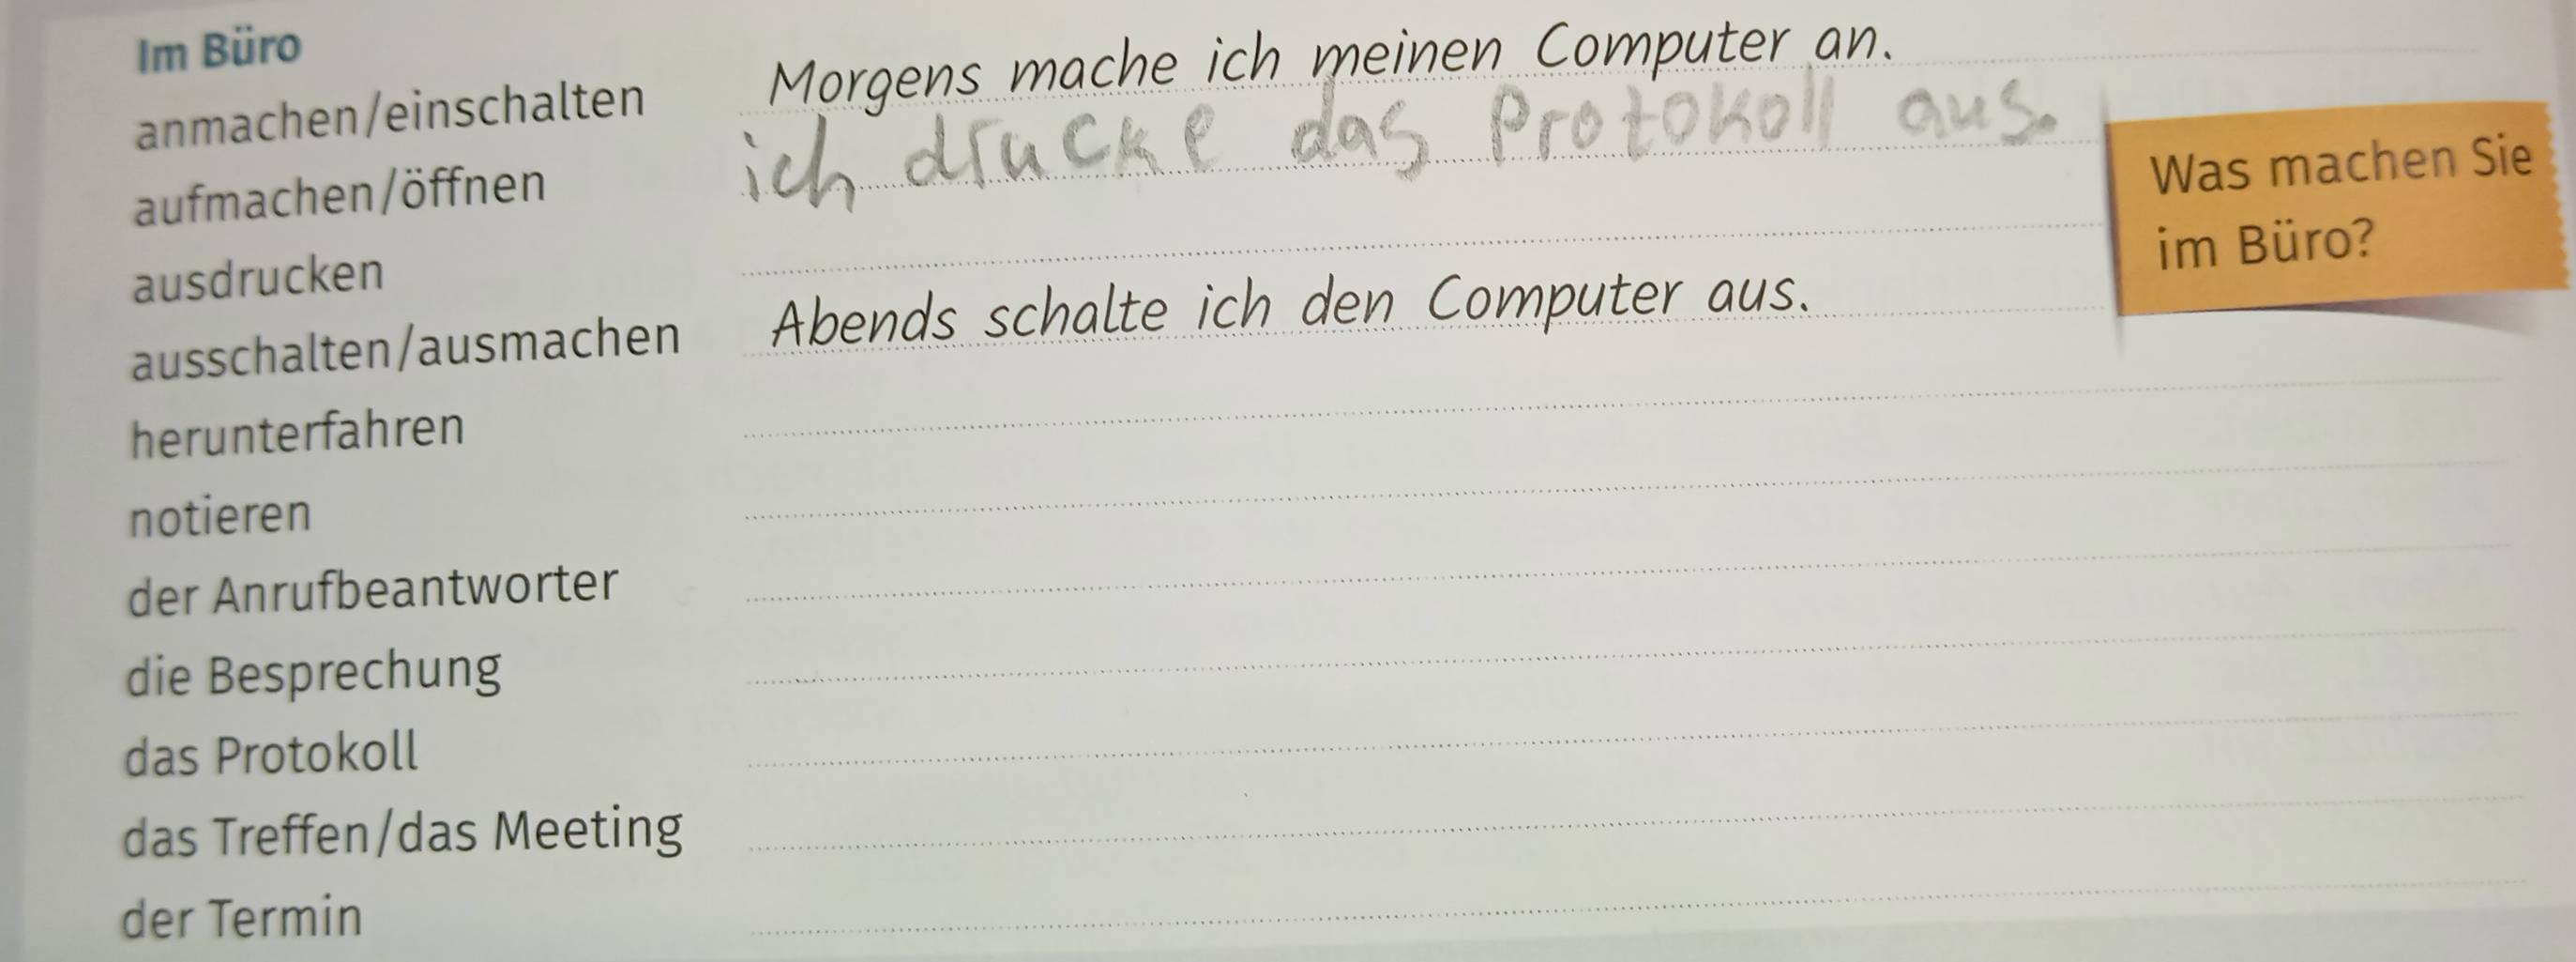 Im Büro
anmachen/einschalten Morgens mache ich meinen Computer an.
aufmachen/öffnen ich drucke das Protokoll aus.
ausdrucken
ausschalten/ausmachen Abends schalte ich den Computer aus.
herunterfahren
notieren
der Anrufbeantworter
die Besprechung
das Protokoll
das Treffen/das Meeting
der Termin
Was machen Sie
im Büro?